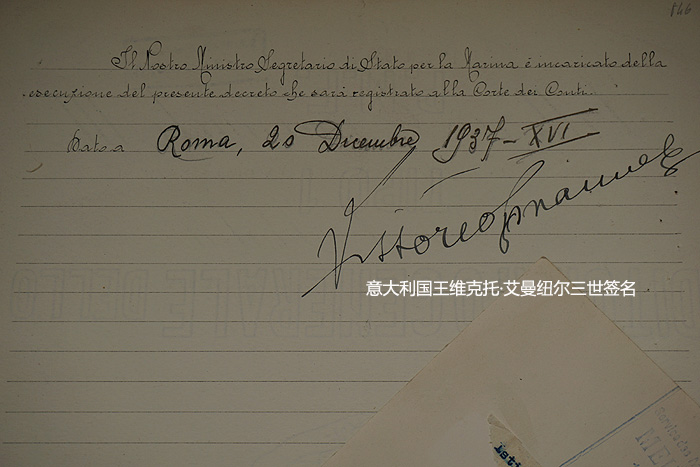 846
Il Nostro Ministro Segretario di Stato per la Marina è incaricato della
esecuzione del presente decreto che sarà registrato alla Corte dei Conti.
Dato a Roma, 20 Dicembre 1937-XVI
Vittorio Emanuele
意大利国王维克托·艾曼纽尔三世签名